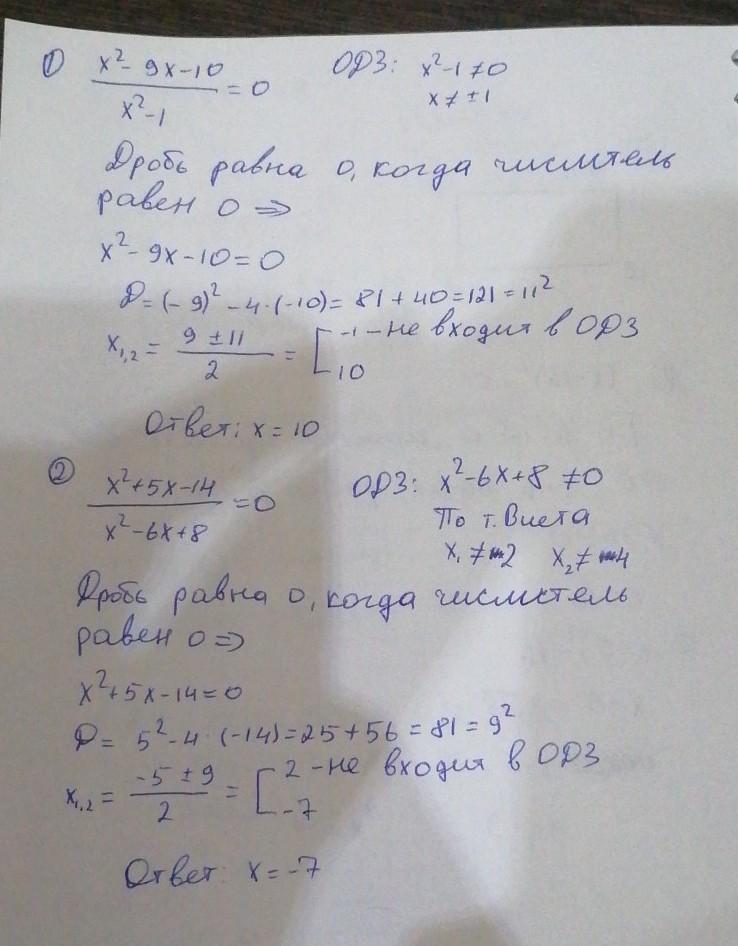 ① (x²-9x-10)/(x²-1) = 0   ОДЗ: x²-1≠0
x≠±1
Дробь равна 0, когда числитель
равен 0 ⇒
x²-9x-10=0
D=(-9)²-4·(-10)=81+40=121=11²
x₁,₂ = (9±11)/2 = [ -1 - не входит в ОДЗ
10
Ответ: x=10
② (x²+5x-14)/(x²-6x+8) =0   ОДЗ: x²-6x+8≠0
По т. Виета
x₁≠2   x₂≠4
Дробь равна 0, когда числитель
равен 0 ⇒
x²+5x-14=0
D= 5²-4·(-14)=25+56=81=9²
x₁,₂ = (-5±9)/2 = [ 2 - не входит в ОДЗ
-7
Ответ: x=-7